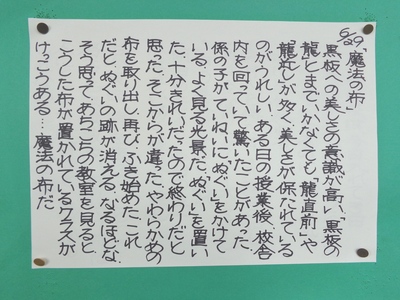 6/29「魔法の布」
黒板への美しさの意識が高い。「黒板の
龍」とまでいかなくても「龍直前」や
「龍近し」が多く、美しさが保たれている
のがうれしい。ある日の授業後、校舎
内を回っていて驚いたことがあった。
係の子がていねいに「ぬぐい」をかけて
いる。よく見る光景だ。ぬぐいを置い
た。十分きれいだったので終わりだと
思った。そこからが違った。やわらかめの
布を取り出し、再び、ふき始めた。これ
だと、ぬぐいの跡が消える。なるほどな。
そう思って、あちこちの教室を見ると、
こうした布が置かれているクラスが
けっこうある…。魔法の布だ。